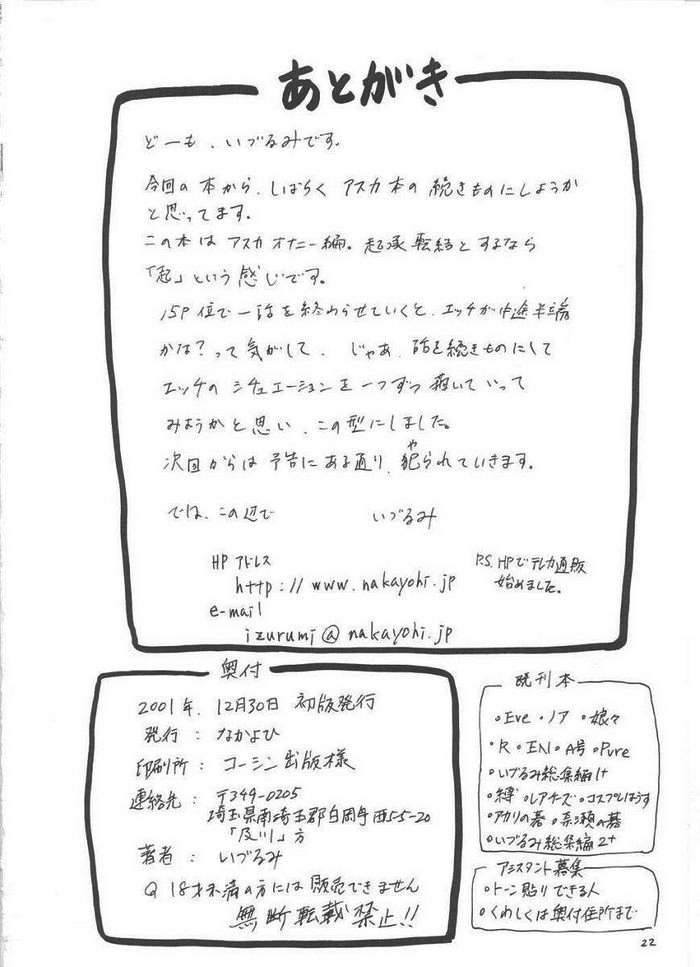 あとがき
どーも、いづるみです。
今回の本から、しばらく アスカ本の続きものにしようか
と思ってます。
この本は アスカオナニー編。起承転結とするなら
「起」という感じです。
15P位で一話を終わらせていくと、エッチが中途半端
かな?って気がして、じゃあ、話を続きものにして
エッチの シチュエーションを一つずつ描いていって
みようかと思い、この型にしました。
次回からは予告にある通り、犯られていきます。
や
では、この辺で いづるみ
HPアドレス
http://www.nakayohi.jp
e-mail
izurumi@nakayohi.jp
P.S. HPでテレカ通販
始めました。
奥付
2001年、12月30日 初版発行
発行:なかよひ
印刷所:コーシン出版様
連絡先:〒349-0205
埼玉県南埼玉郡白岡町西5-5-20
「及川」方
著者:いづるみ
18才未満の方には販売できません
無断転載禁止!!
既刊本
○Eve ・ノア ○娘々
・R ○EN ○A号 ○Pure
○いづるみ総集編1+
○縛 ○レアチーズ ○コスプレはうす
○アカリの碁 ○奈瀬の碁
○いづるみ総集編2+
アシスタント募集
○トーン貼りできる人
○くわしくは奥付住所まで
22